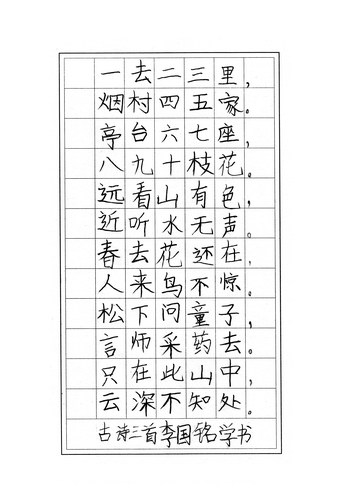 一去二三里，
烟村四五家。
亭台六七座，
八九十枝花。
远看山有色，
近听水无声。
春去花还在，
人来鸟不惊。
松下问童子，
言师采药去。
只在此山中，
云深不知处。
古诗三首李国铭学书